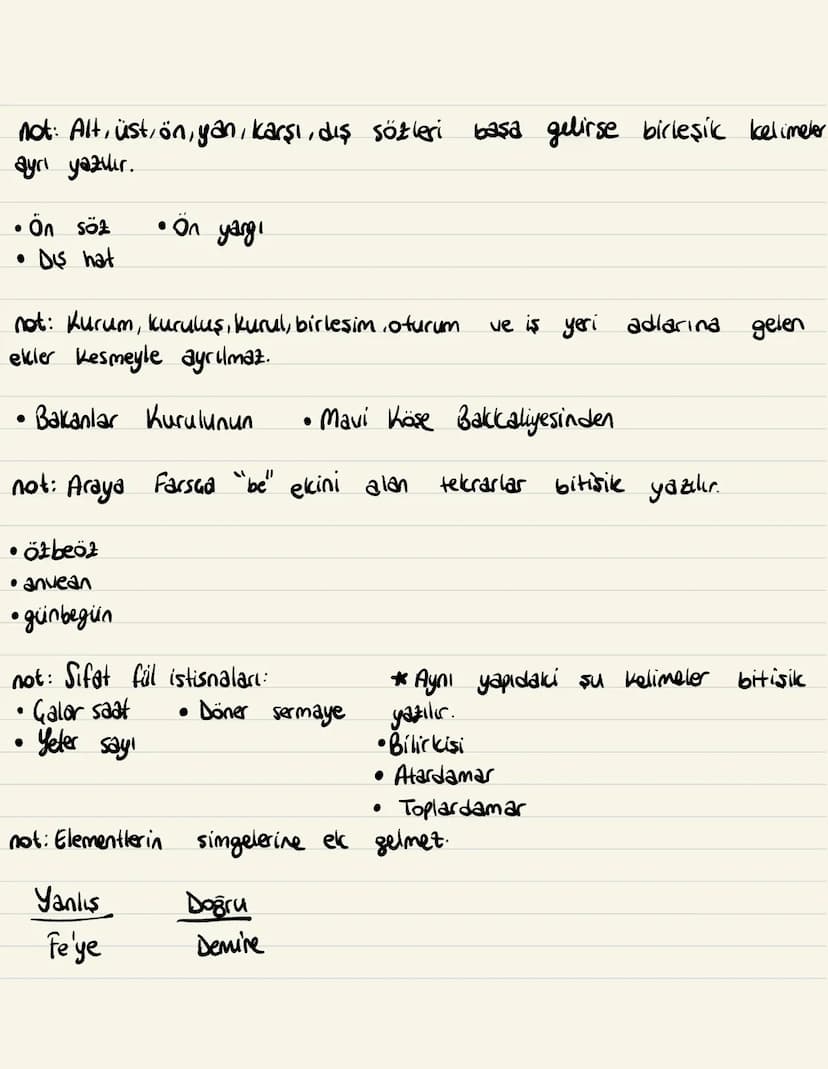 not: Alt, üst, ön, yan, karşı, dış sözleri başa gelirse birleşik kelimeler
ayrı yazılır.
• Ön söz • Ön yargı
• Dış hat
not: Kurum, kuruluş, kurul, birleşim, oturum ve iş yeri adlarına gelen
ekler kesmeyle ayrılmaz.
• Bakanlar Kurulunun • Mavi Köşe Bakkaliyesinden
not: Araya Farsça "be" ekini alan tekrarlar bitişik yazılır.
• özbeöz
• anbean
• günbegün
not: Sıfat fiil istisnaları:
• Çalar saat • Döner sermaye
• Yeter sayı
* Aynı yapıdaki şu kelimeler bitişik
yazılır.
• Bilirkişi
• Atardamar
• Toplardamar
not: Elementlerin simgelerine ek gelmez.
Yanlış Doğru
Fe'ye Demire